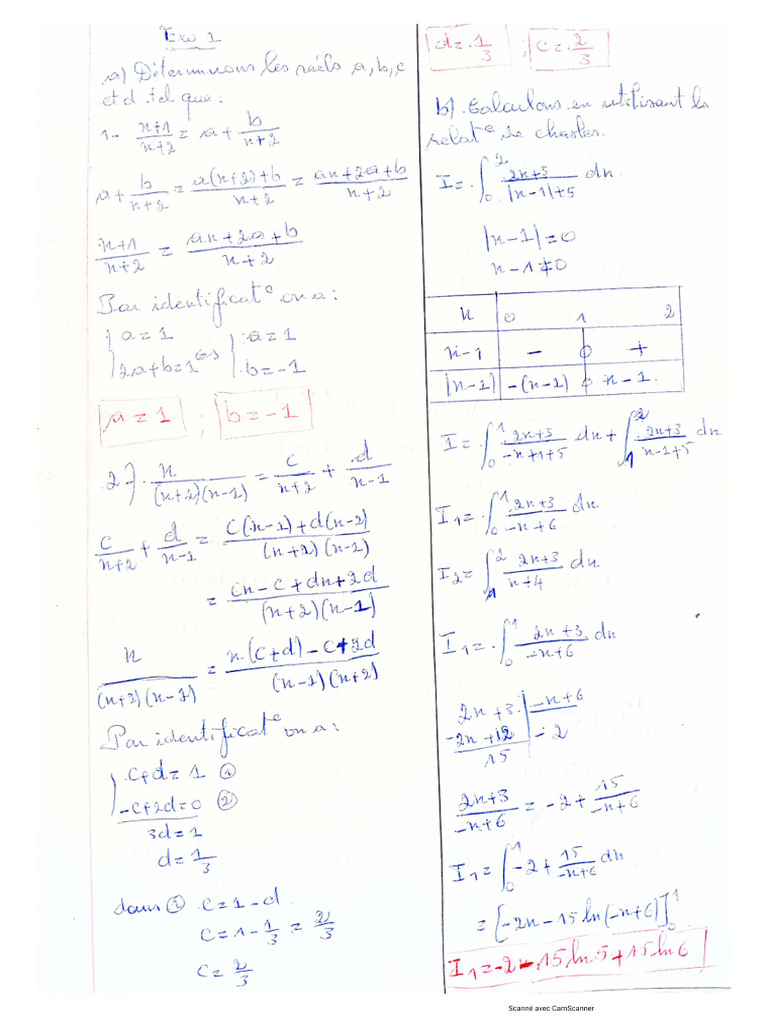 Exo 1
a) Déterminons les réels a, b, c
et d tel que :
1- \frac{x+1}{x+2} = a + \frac{b}{x+2}
a + \frac{b}{x+2} = \frac{a(x+2)+b}{x+2} = \frac{ax+2a+b}{x+2}
\frac{x+1}{x+2} = \frac{ax+2a+b}{x+2}
Par identificat° on a :
{ a = 1
2a+b = 1 <=> { a = 1
b = -1
a = 1 ; b = -1
2) \frac{x}{(x+2)(x-1)} = \frac{c}{x+2} + \frac{d}{x-1}
\frac{c}{x+2} + \frac{d}{x-1} = \frac{c(x-1)+d(x-2)}{(x+2)(x-1)}
= \frac{cx-c+dx+2d}{(x+2)(x-1)}
\frac{x}{(x+2)(x-1)} = \frac{x(c+d)-c+2d}{(x-1)(x+2)}
Par identificat° on a :
{ c+d = 1 ①
-c+2d = 0 ②
3d = 1
d = \frac{1}{3}
dans ① c = 1-d
c = 1 - \frac{1}{3} = \frac{2}{3}
c = \frac{2}{3}
d = \frac{1}{3} ; c = \frac{2}{3}
b) Calculons en utilisant la
relat° de chasles.
I = \int_0^2 \frac{2x+3}{|x-1|+5} dx
|x-1| = 0
x-1 ≠ 0
x 0 1 2
x-1 - 0 +
|x-1| -(x-1) 0 x-1
I = \int_0^1 \frac{2x+3}{-x+1+5} dx + \int_1^2 \frac{2x+3}{x-1+5} dx
I_1 = \int_0^1 \frac{2x+3}{-x+6} dx
I_2 = \int_1^2 \frac{2x+3}{x+4} dx
I_1 = \int_0^1 \frac{2x+3}{-x+6} dx
2x+3 | -x+6
-2x+12 | -2
15
\frac{2x+3}{-x+6} = -2 + \frac{15}{-x+6}
I_1 = \int_0^1 -2 + \frac{15}{-x+6} dx
= [-2x - 15 ln(-x+6)]_0^1
I_1 = -2 - 15 ln 5 + 15 ln 6
Scanné avec CamScanner